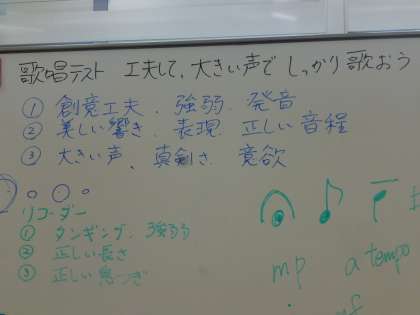 歌唱テスト 工夫して、大きい声で しっかり歌おう
① 創意工夫、強弱、発音
② 美しい響き、表現、正しい音程
③ 大きい声、真剣さ、意欲
リコーダー
① タンギング、強弱
② 正しい長さ
③ 正しい息つぎ
mp a tempo
mf